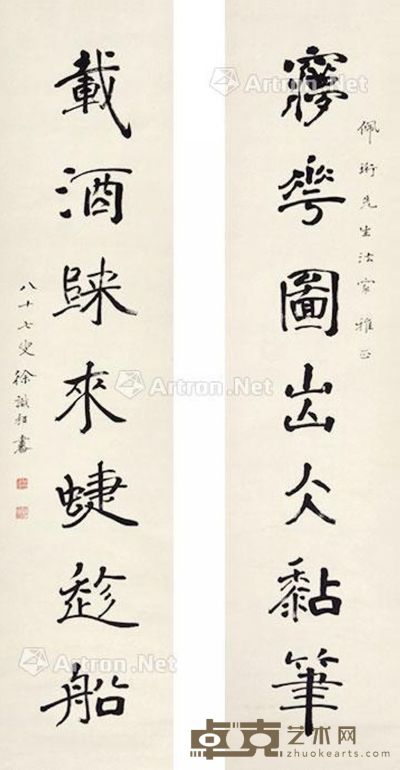 佩珩先生法家雅正
㝱華圖出人黏筆
載酒歸來蜨趁船
八十七叟徐書
Artron.Net
Artron.Net
Artron.Net
Artron.Net
卓克艺术网
www.zhuokearts.com